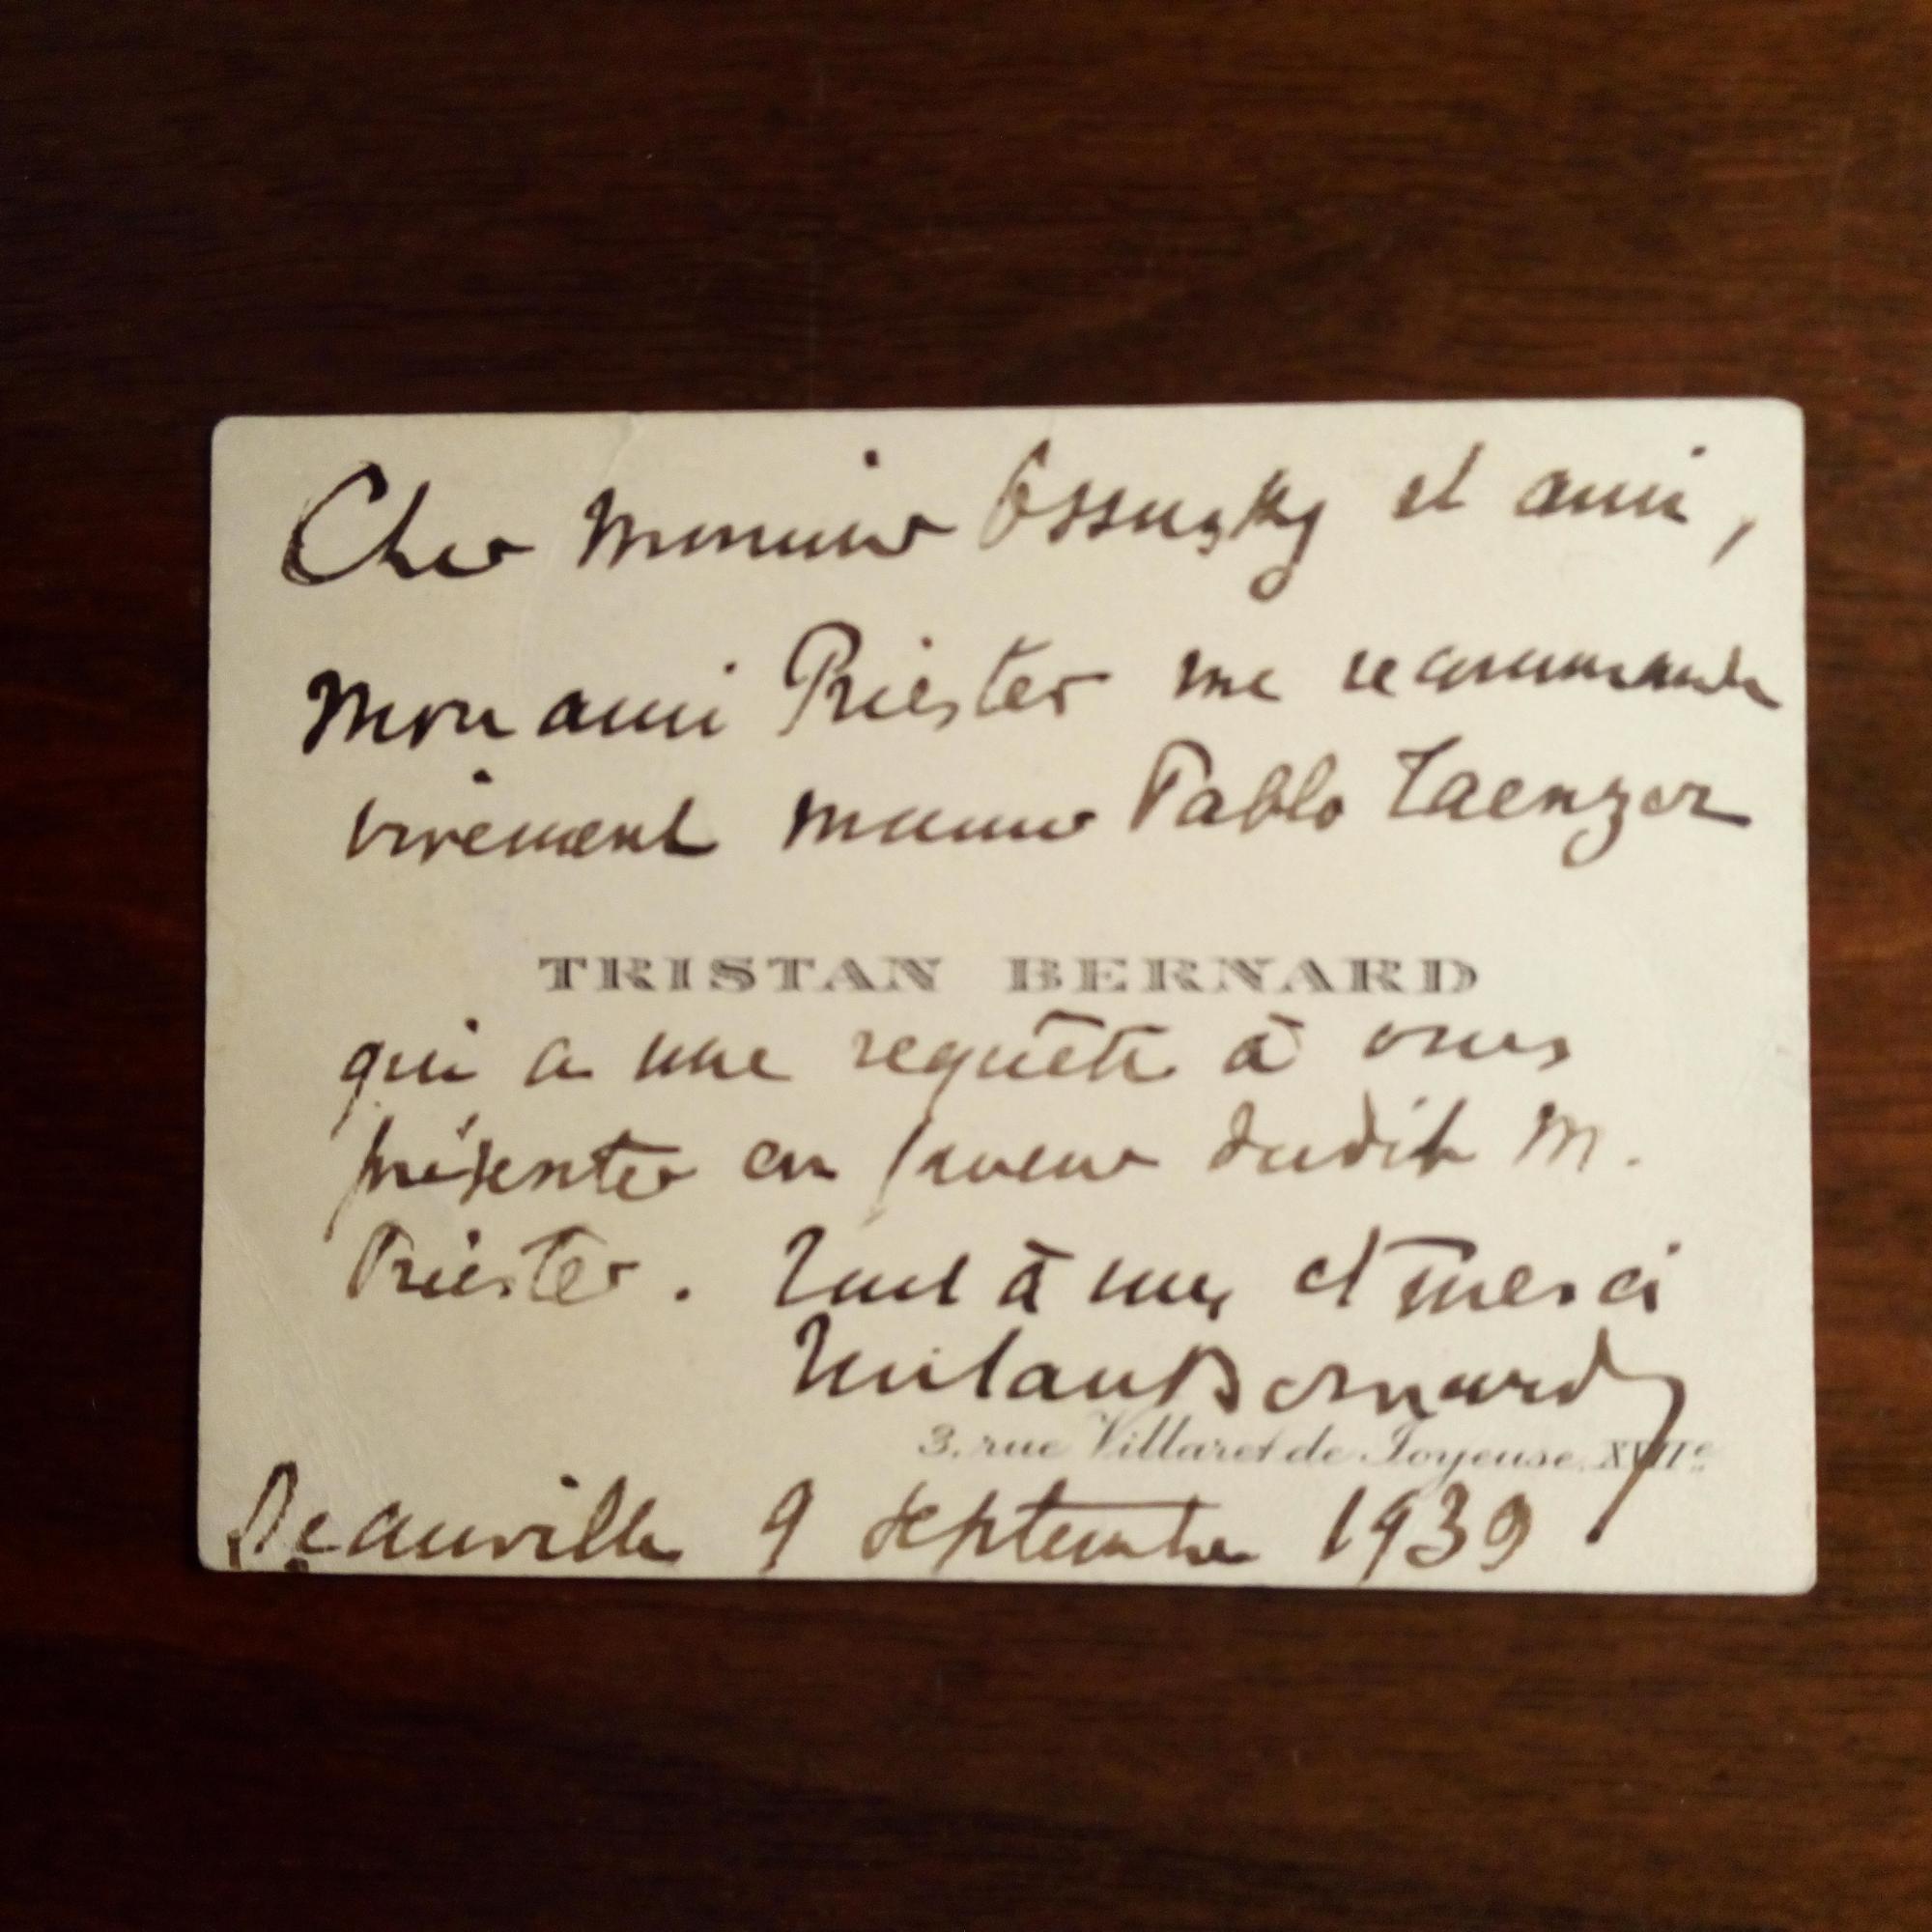 Cher Monsieur Ossusky et ami,
Mon ami Priester me recommande
vivement monsieur Pablo Taenzer
TRISTAN BERNARD
qui a une requête à vous
présenter en faveur dudit M.
Priester. Tout à vous et merci
Tristan Bernard
3, rue Villaret de Joyeuse. XVIIe
Deauville 9 septembre 1939